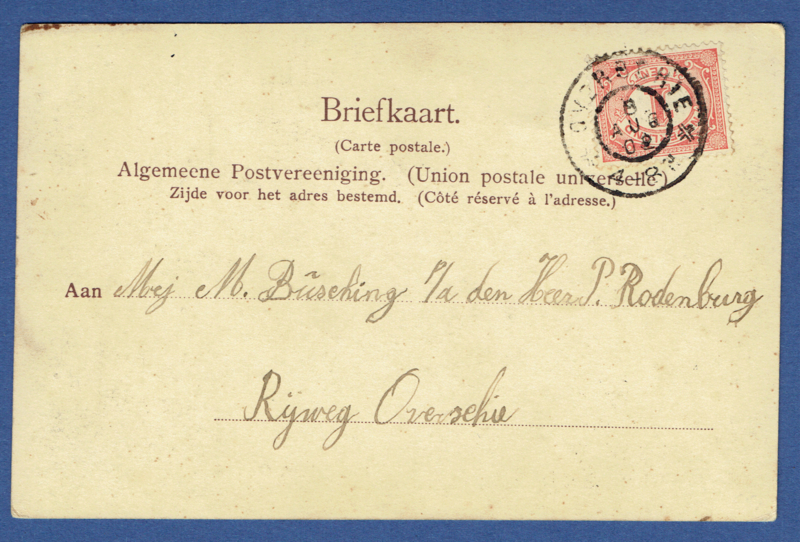 Briefkaart.
(Carte postale.)
Algemeene Postvereeniging. (Union postale universelle)
Zijde voor het adres bestemd. (Côté réservé à l'adresse.)
Aan Mej M. Büsching p/a den Heer P. Rodenburg
Rijweg Overschie
OVERSCHIE
8 AUG 02